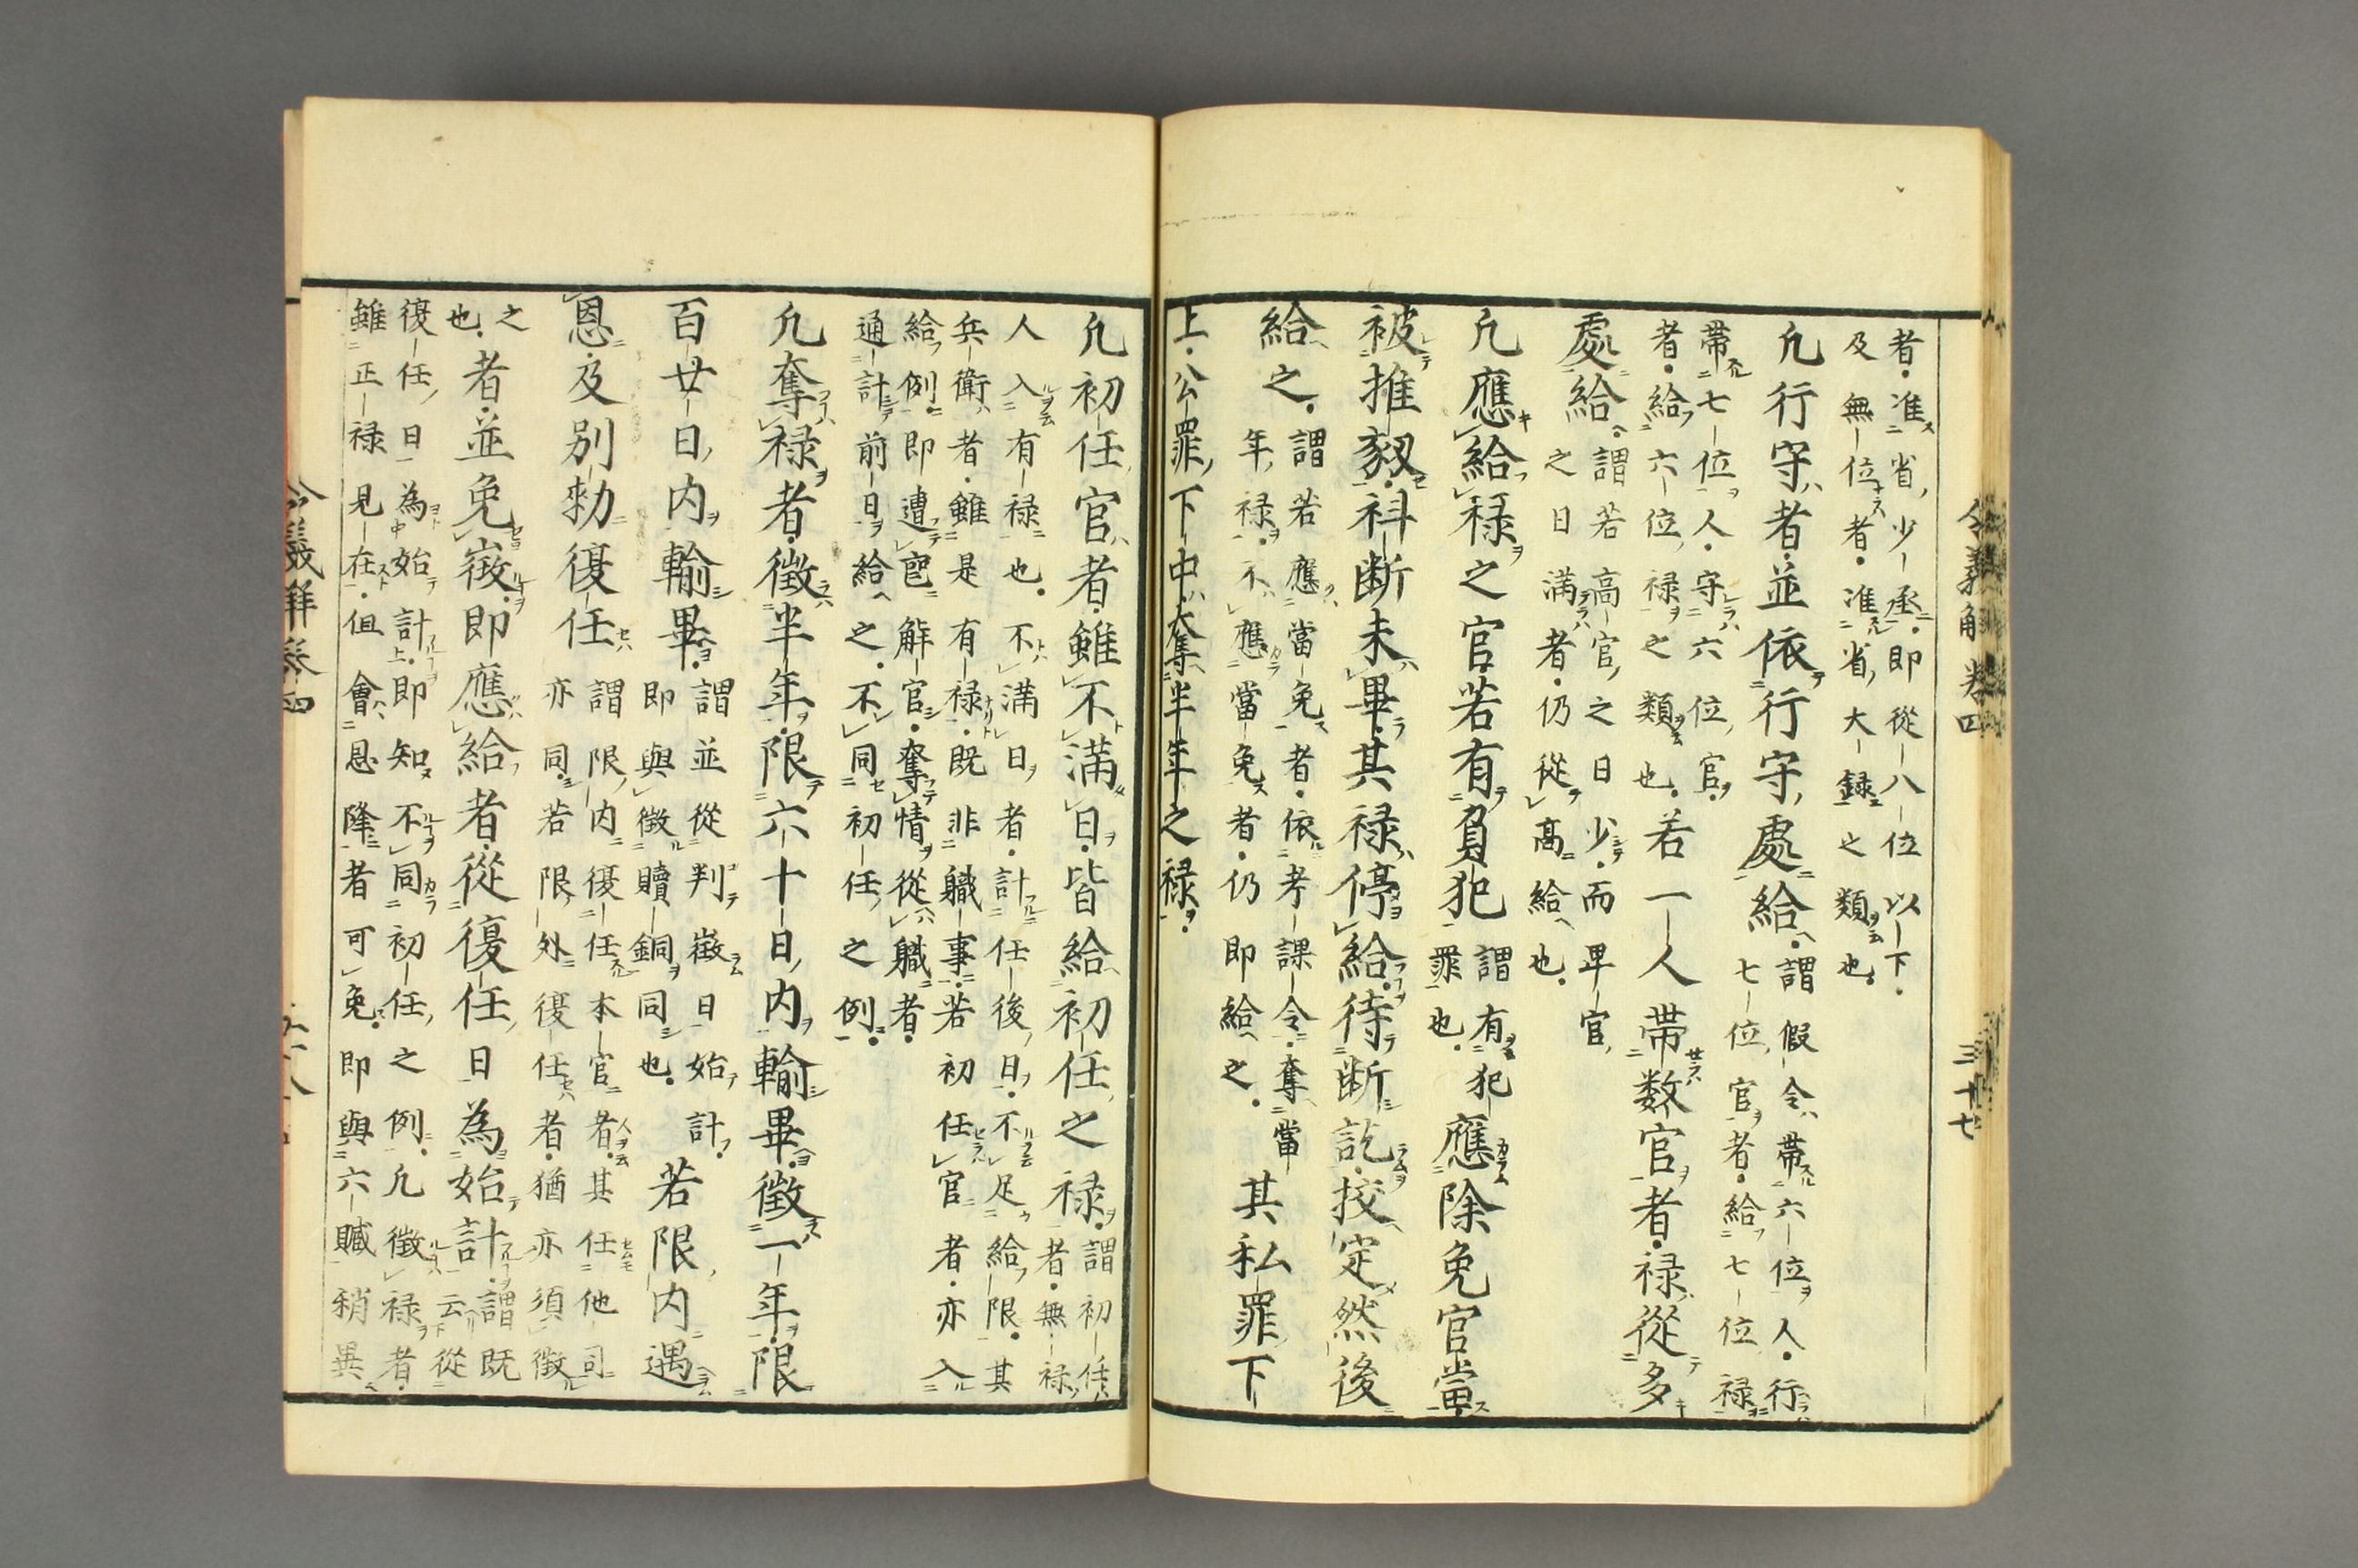 者准省少丞即從八位以下
及無位者准省大録之類也
凢行守者並依行守處給謂假令帶六位人行
七位官者給七位禄
帶七位人守六位官
者給六位禄之類也若一人帶数官者禄從多
處給謂若高官之日少而卑官
之日満者仍從高給也
凢應給禄之官若有負犯謂有犯
罪也應除免官當
被推劾科断未畢其禄停給待断訖挍定然後
給之謂若應當免者依考課令奪當
年禄不應當免者仍即給之其私罪下
上公罪下中奪半年之禄
令義解卷四
三十七
凢初任官者雖不満日皆給初任之禄謂初任
者無禄
人入有禄也不満日者計任後日不足給限其
兵衛者雖是有禄既非軄事若初任官者亦入
給例即遭官解官奪情從軄者
通計前日給之不同初任之例
凢奪禄者徴半年限六十日内輸畢徴一年限
百廿日内輸畢謂並從判徴日始計
即與徴贖銅同也若限内遇
恩及別勑復任謂限内復任本官者其任他司
亦同若限外復任者猶亦須徴
之
也者並免徴即應給者從復任日為始計謂既
云從
復任日為始計即知不同初任之例凢徴禄者
雖正禄見在但會恩降者可免即與六贓稍異
令義解卷四